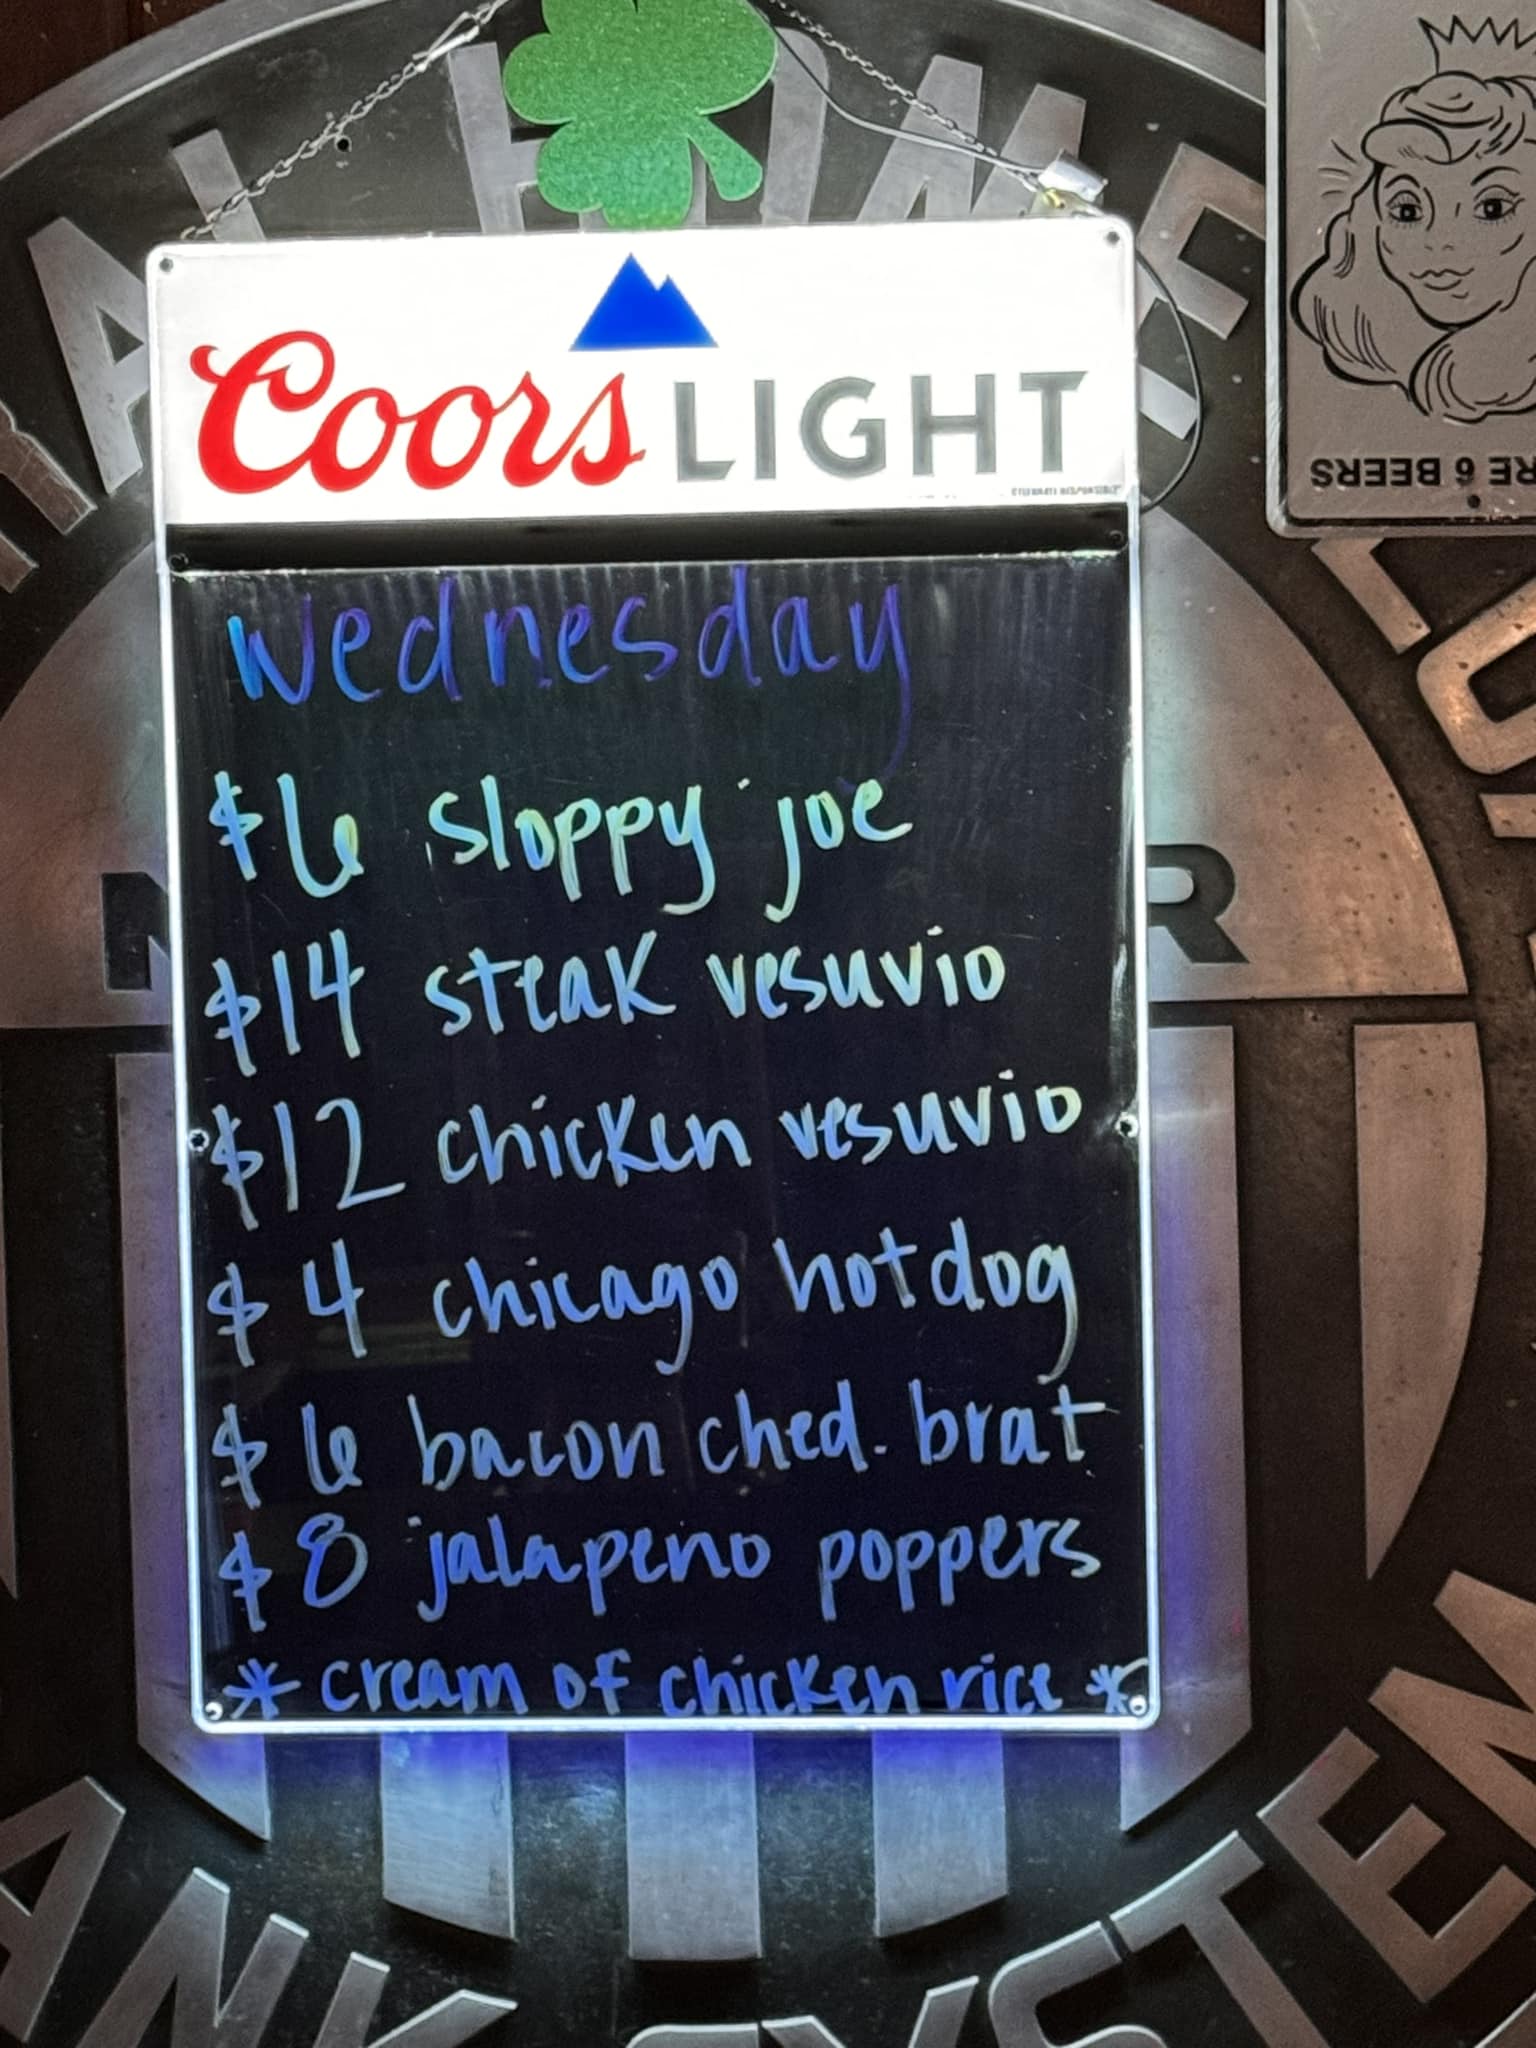 Coors LIGHT
CELEBRATE RESPONSIBLY
Wednesday
$6 sloppy joe
$14 steak vesuvio
$12 chicken vesuvio
$4 chicago hotdog
$6 bacon ched. brat
$8 jalapeno poppers
* cream of chicken rice *
6 BEERS
HOME
SYSTEM